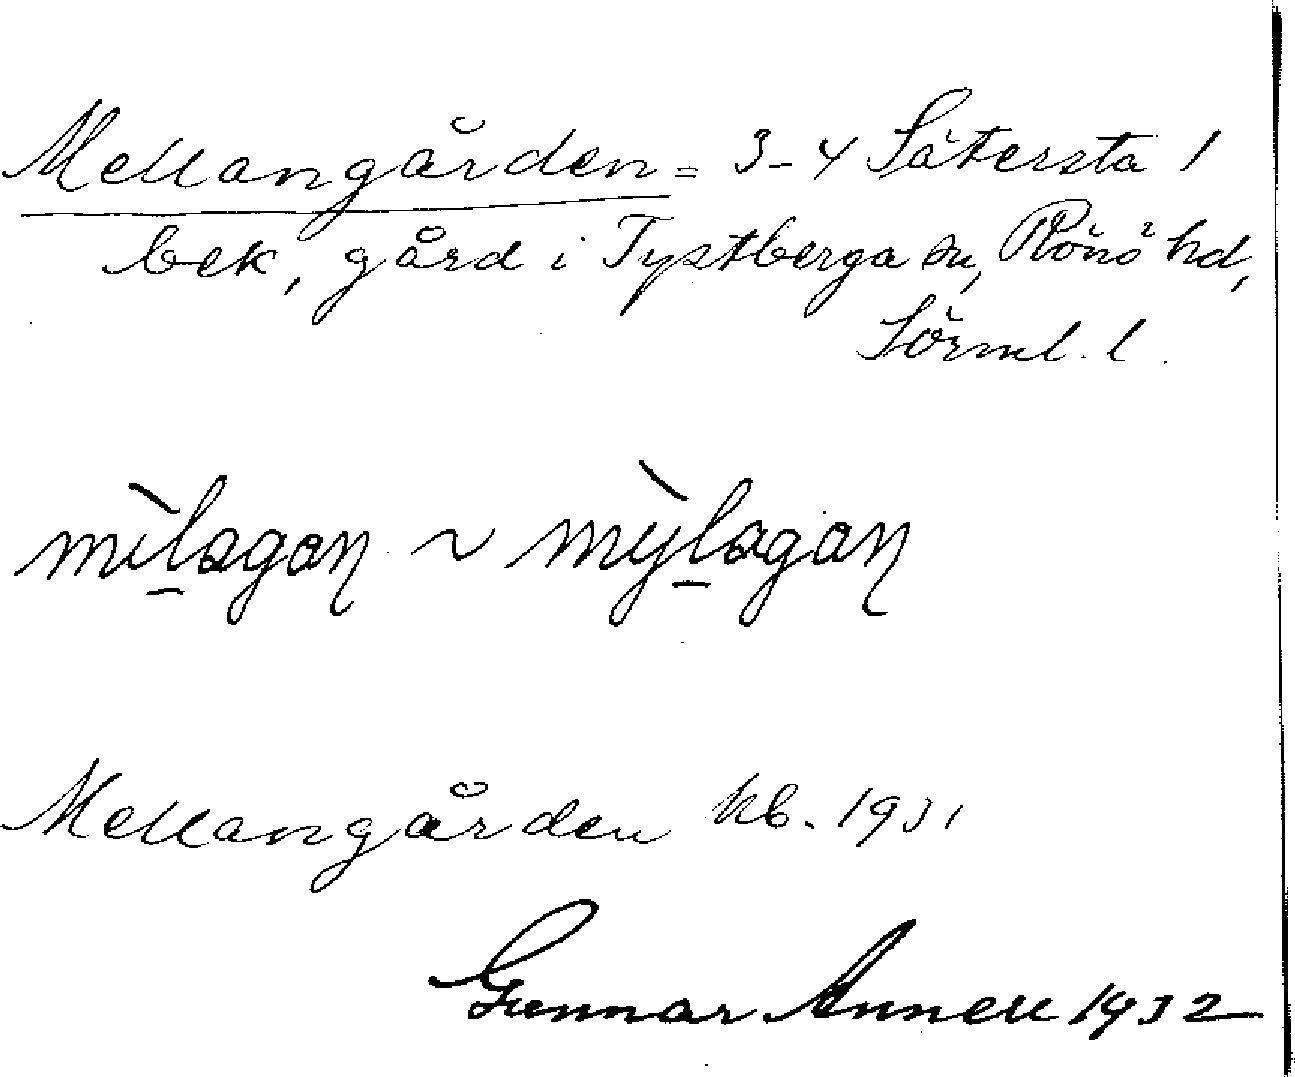 Mellangården = 3-4 Sätersta 1
bek, gård i Tystberga sn, Rönö hd,
Sörml. l.
mìlagaɳ ~ mỳlagaɳ
Mellangården kb. 1931
Gunnar Annell 1932